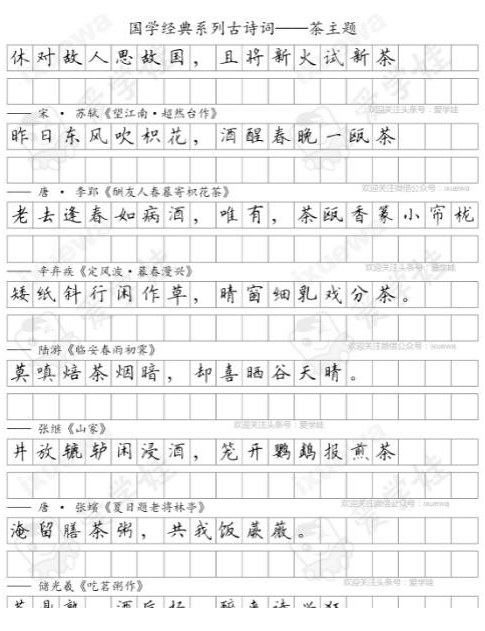 国学经典系列古诗词——茶主题
休对故人思故国，且将新火试新茶
—— 宋 · 苏轼《望江南·超然台作》
欢迎关注头条号：爱学娃
昨日东风吹枳花，酒醒春晚一瓯茶
—— 唐 · 李郢《酬友人春暮寄枳花茶》
欢迎关注微信公众号：ixuewa
老去逢春如病酒，唯有，茶瓯香篆小帘栊
—— 辛弃疾《定风波·暮春漫兴》
欢迎关注头条号：爱学娃
矮纸斜行闲作草，晴窗细乳戏分茶。
—— 陆游《临安春雨初霁》
欢迎关注微信公众号：ixuewa
莫嗔焙茶烟暗，却喜晒谷天晴。
—— 张继《山家》
欢迎关注头条号：爱学娃
井放辘轳闲浸酒，笼开鹦鹉报煎茶
—— 唐 · 张蠙《夏日题老将林亭》
欢迎关注微信公众号：ixuewa
淹留膳茶粥，共我饭蕨薇。
—— 储光羲《吃茗粥作》
欢迎关注头条号：爱学娃